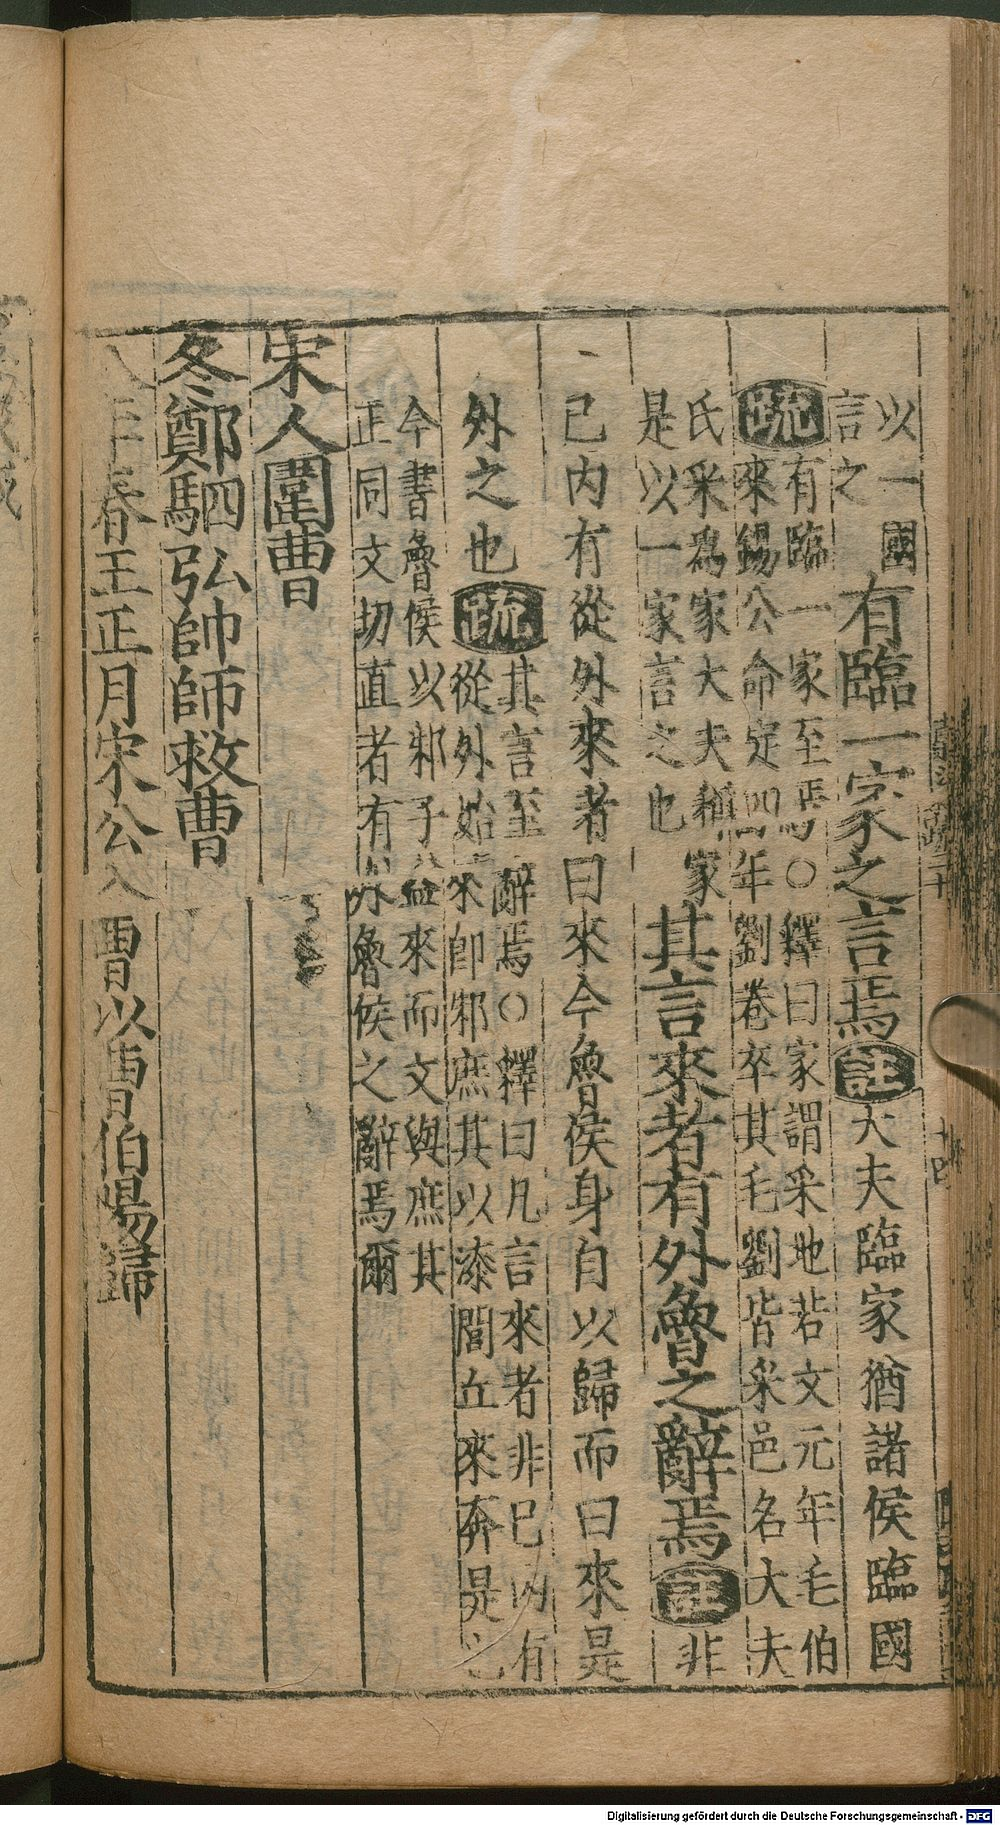 以一國
言之
有臨一家之言焉
註
大夫臨家猶諸侯臨國
疏
有臨一家至焉○釋曰家謂采地若文元年毛伯
來錫公命定四年劉卷卒其毛劉皆采邑名大夫
氏采為家大夫稱家
是以一家言之也
其言來者有外魯之辭焉
註
非
已內有從外來者曰來今魯侯身自以歸而曰來是
外之也
疏
其言至辭焉○釋曰凡言來者非已內有
從外始來即邾庶其以漆閭丘來奔是也
今書魯侯以邾子益來而文與庶其
正同文切直者有外魯侯之辭焉爾
宋人圍曹
冬鄭駟弘帥師救曹
八年春王正月宋公入曹以曹伯陽歸
Digitalisierung gefördert durch die Deutsche Forschungsgemeinschaft - DFG